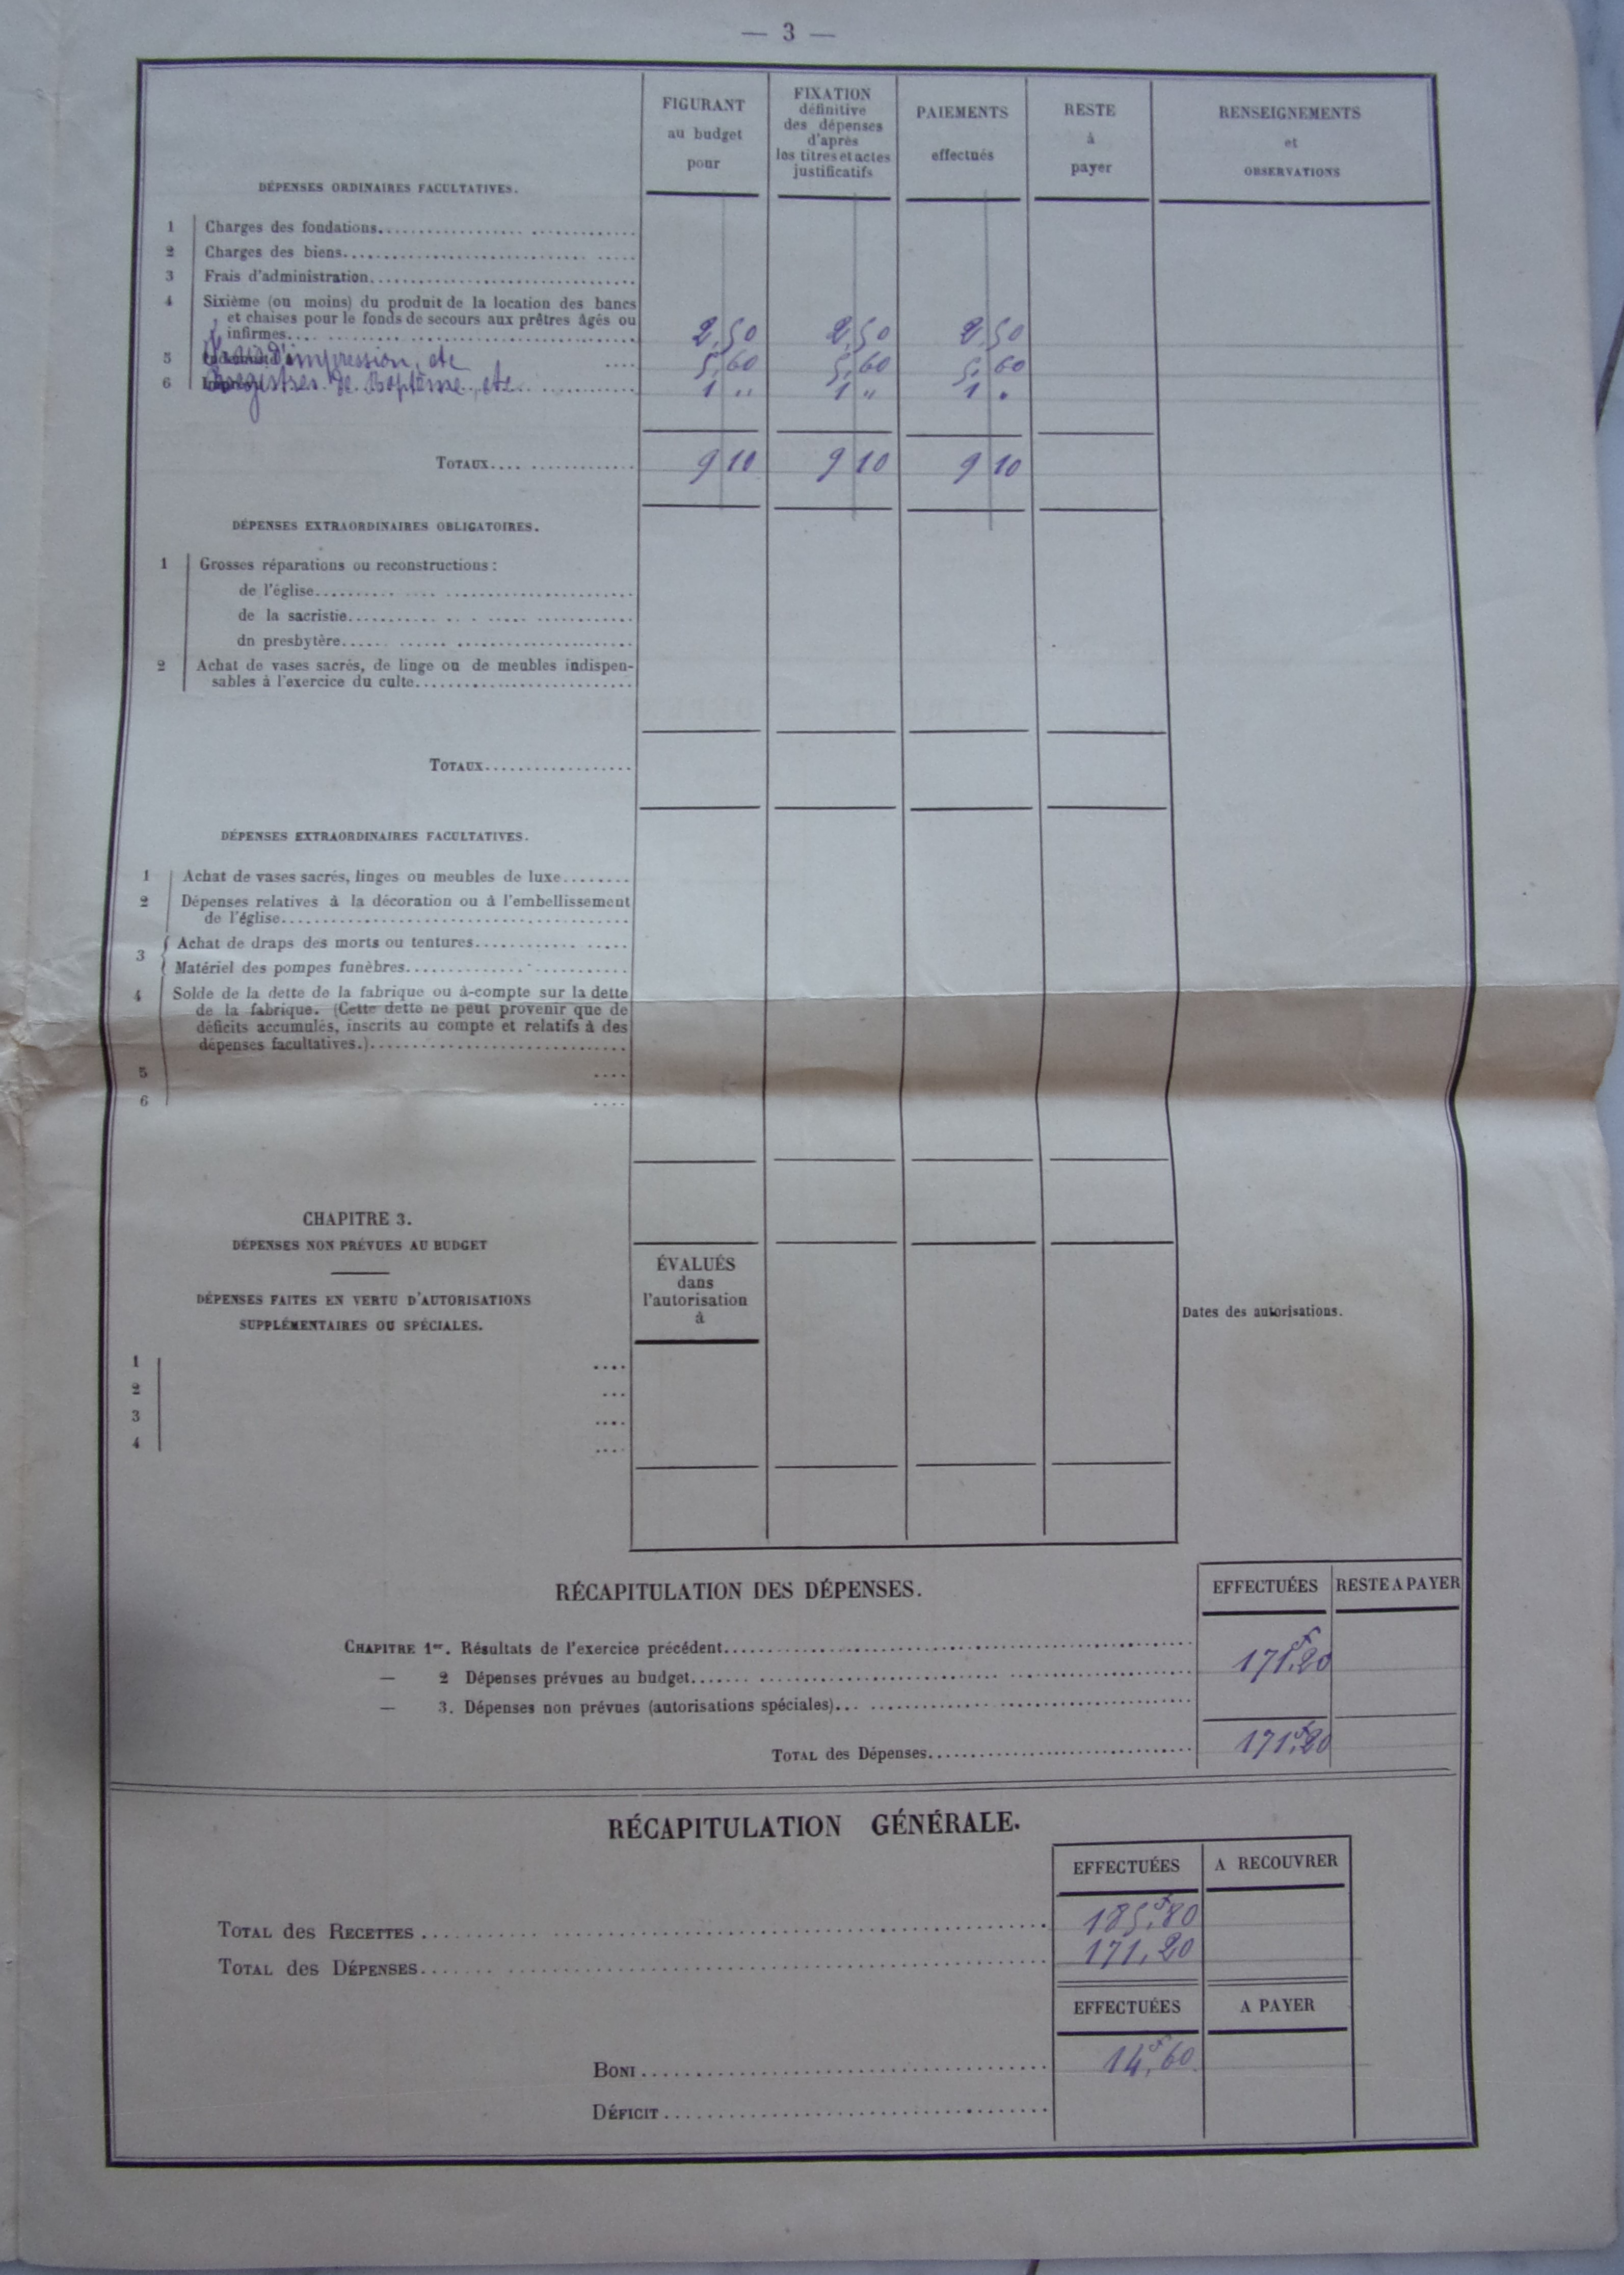 — 3 —
FIGURANT
au budget
pour
FIXATION
définitive
des dépenses
d'après
les titres et actes
justificatifs
PAIEMENTS
effectués
RESTE
à
payer
RENSEIGNEMENTS
et
OBSERVATIONS
DÉPENSES ORDINAIRES FACULTATIVES.
1 Charges des fondations
2 Charges des biens
3 Frais d'administration
4 Sixième (ou moins) du produit de la location des bancs
et chaises pour le fonds de secours aux prêtres âgés ou
infirmes 2,50 2,50 2,50
5 d'impression, etc 5,60 5,60 5,60
6 Registres de Baptême, etc 1 " 1 " 1 "
TOTAUX 9 10 9 10 9 10
DÉPENSES EXTRAORDINAIRES OBLIGATOIRES.
1 Grosses réparations ou reconstructions :
de l'église
de la sacristie
dn presbytère
2 Achat de vases sacrés, de linge ou de meubles indispen-
sables à l'exercice du culte
TOTAUX
DÉPENSES EXTRAORDINAIRES FACULTATIVES.
1 Achat de vases sacrés, linges ou meubles de luxe
2 Dépenses relatives à la décoration ou à l'embellissement
de l'église
3 Achat de draps des morts ou tentures
Matériel des pompes funèbres
4 Solde de la dette de la fabrique ou à-compte sur la dette
de la fabrique. (Cette dette ne peut provenir que de
déficits accumulés, inscrits au compte et relatifs à des
dépenses facultatives.)
5
6
CHAPITRE 3.
DÉPENSES NON PRÉVUES AU BUDGET
DÉPENSES FAITES EN VERTU D'AUTORISATIONS
SUPPLÉMENTAIRES OU SPÉCIALES.
ÉVALUÉS
dans
l'autorisation
à
Dates des autorisations.
1
2
3
4
RÉCAPITULATION DES DÉPENSES.
EFFECTUÉES RESTE A PAYER
CHAPITRE 1er. Résultats de l'exercice précédent
— 2 Dépenses prévues au budget 171f,20
— 3. Dépenses non prévues (autorisations spéciales)
TOTAL des Dépenses 171f,20
RÉCAPITULATION GÉNÉRALE.
EFFECTUÉES A RECOUVRER
TOTAL des RECETTES 185f,80
TOTAL des DÉPENSES 171,20
EFFECTUÉES A PAYER
BONI 14f,60
DÉFICIT